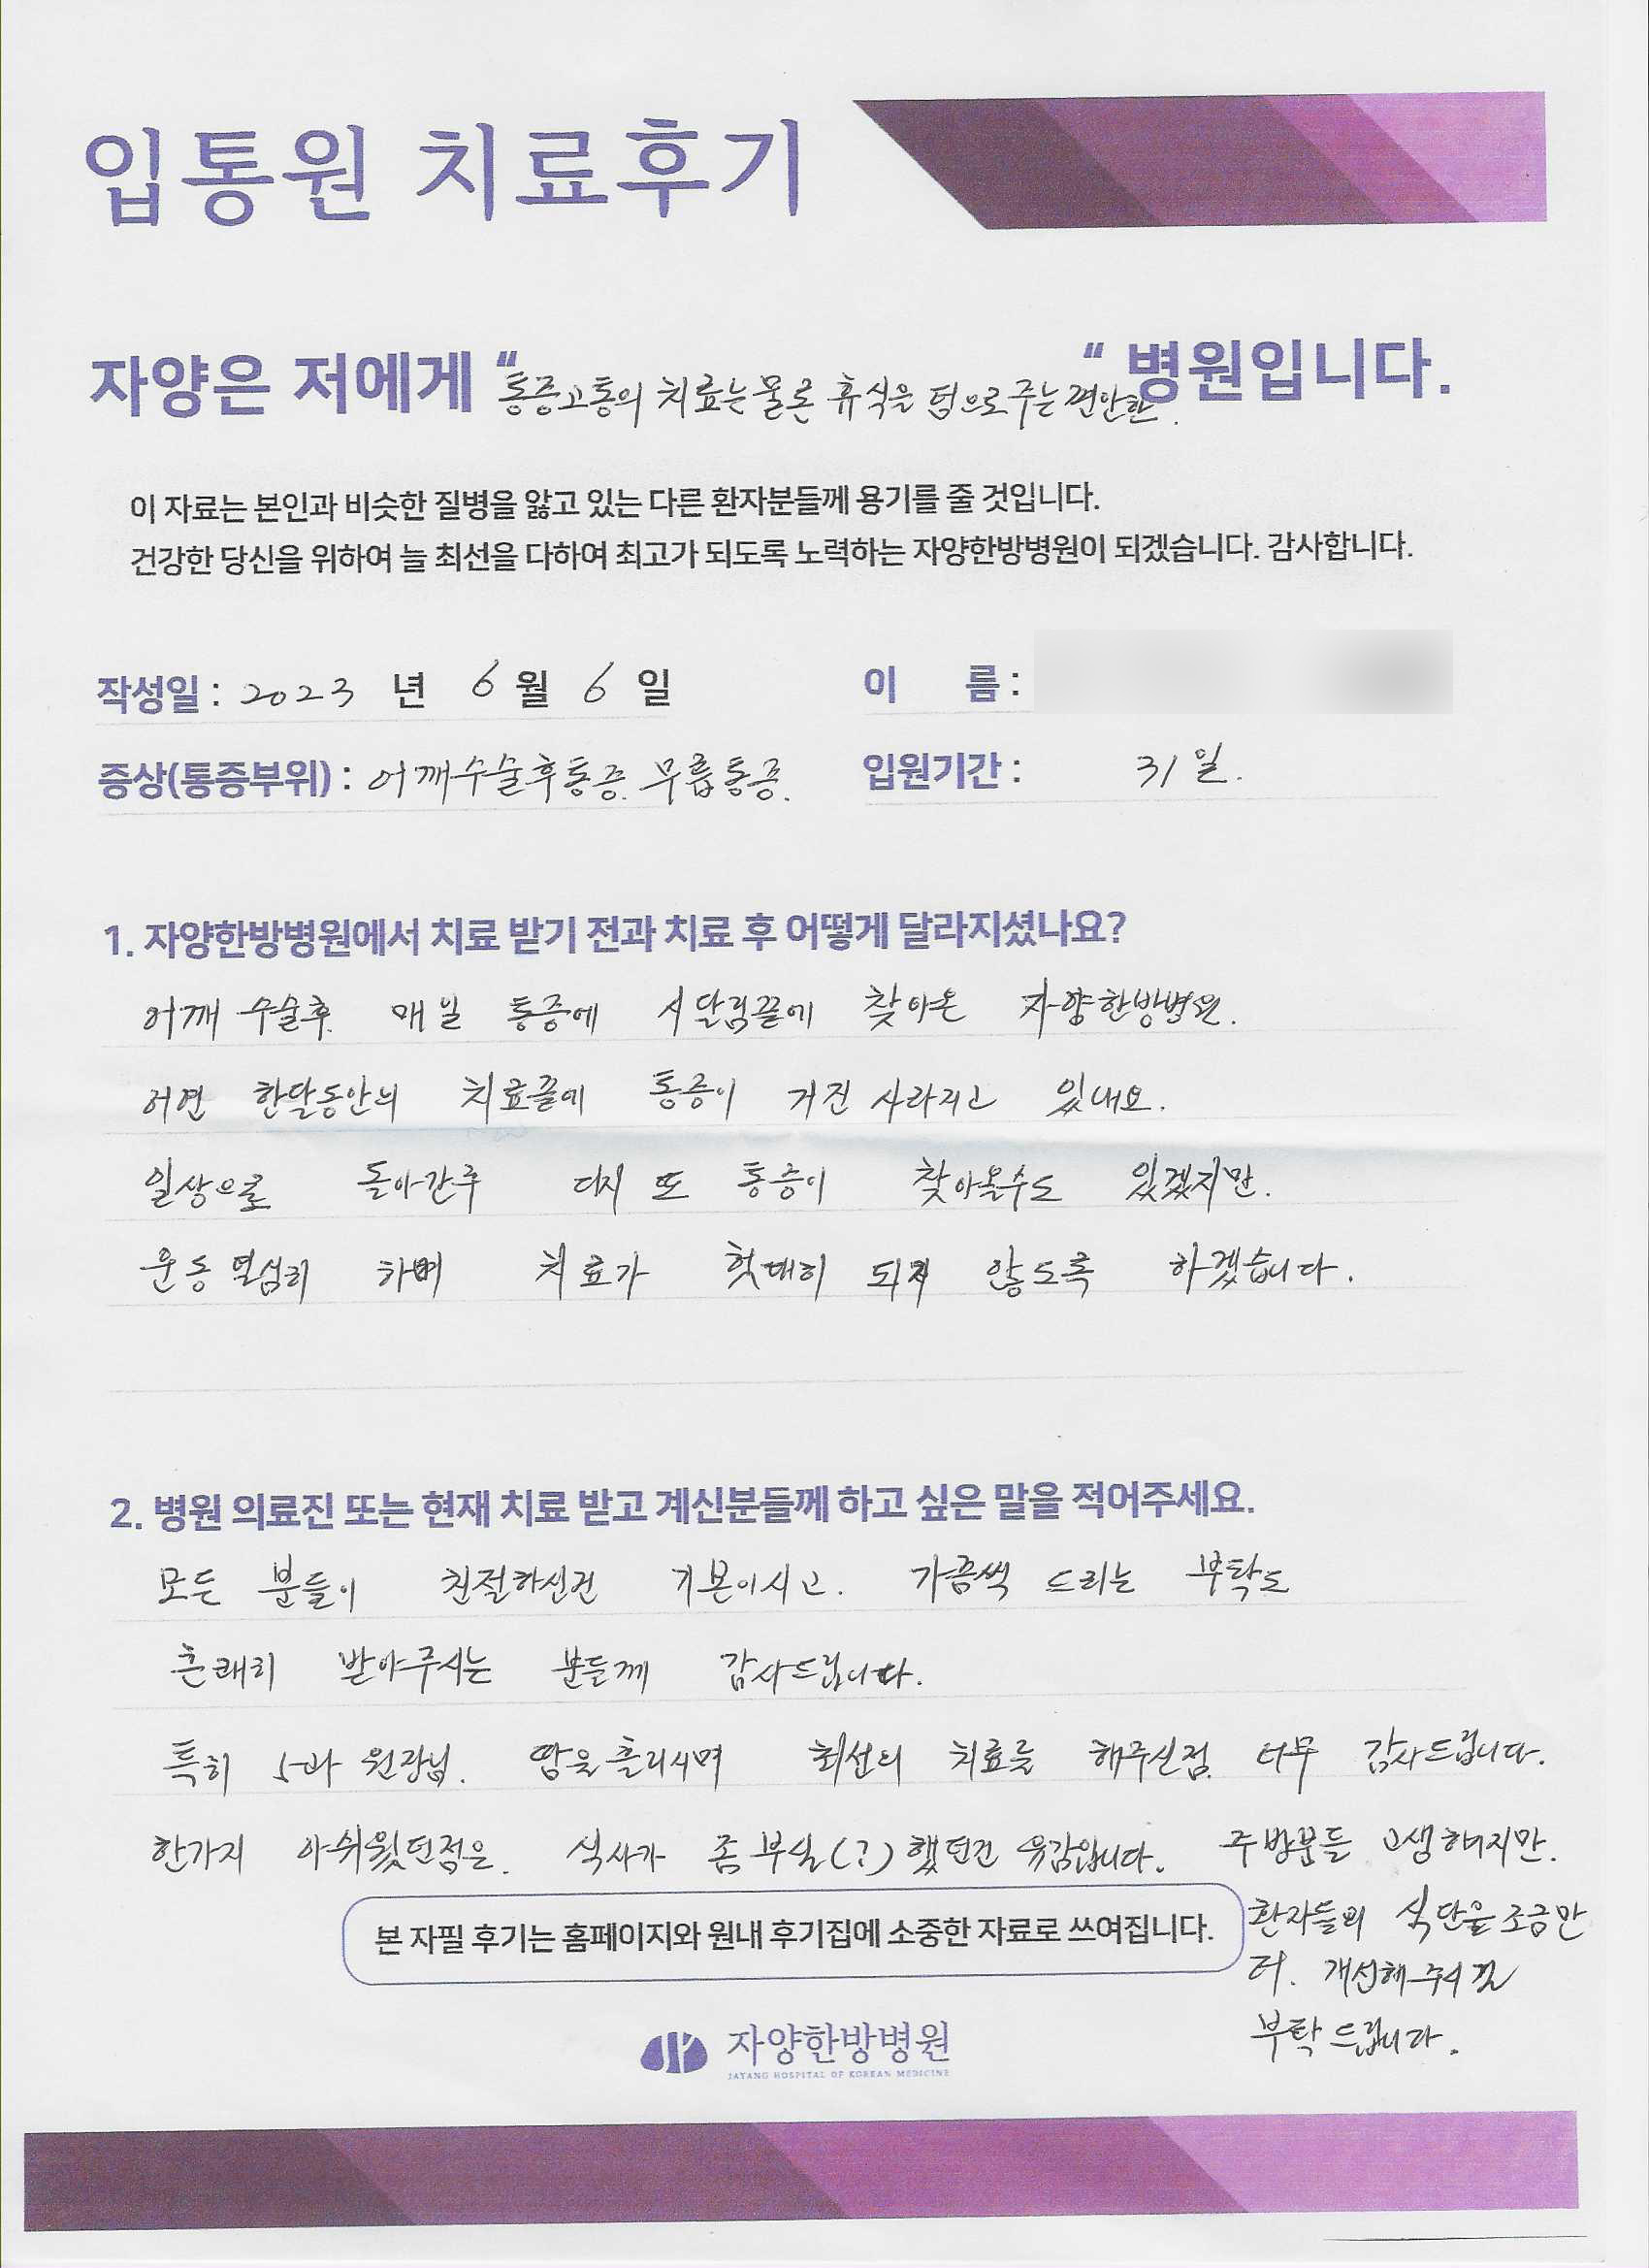 입통원 치료후기
자양은 저에게 " 통증고통의 치료는물론 휴식을 덤으로주는편안한. " 병원입니다.
이 자료는 본인과 비슷한 질병을 앓고 있는 다른 환자분들께 용기를 줄 것입니다.
건강한 당신을 위하여 늘 최선을 다하여 최고가 되도록 노력하는 자양한방병원이 되겠습니다. 감사합니다.
작성일 : 2023 년 6 월 6 일 이 름 :
증상(통증부위) : 어깨수술후통증. 무릎통증. 입원기간 : 31일.
1. 자양한방병원에서 치료 받기 전과 치료 후 어떻게 달라지셨나요?
어깨 수술후. 매일 통증에 시달림끝에 찾아온 자양한방병원.
어연 한달동안의 치료끝에 통증이 거진 사라지고 있내요.
일상으로 돌아간후 다시 또 통증이 찾아올수도 있겠지만.
운동 열심히 하며 치료가 헛되히 되지 않도록 하겠습니다.
2. 병원 의료진 또는 현재 치료 받고 계신분들께 하고 싶은 말을 적어주세요.
모든 분들이 친절하신건 기본이시고. 가끔씩 드리는 부탁도
흔쾌히 받아주시는 분들께 감사드립니다.
특히 5과 원장님. 땀을흘리시며 최선의 치료를 해주신점. 너무 감사드립니다.
한가지 아쉬웠던점은. 식사가 좀 부실(?)했던건 유감입니다. 주방분들 고생하시지만.
환자들의 식단을 조금만
더. 개선해주시길
부탁드립니다.
본 자필 후기는 홈페이지와 원내 후기집에 소중한 자료로 쓰여집니다.
자양한방병원
JAYANG HOSPITAL OF KOREAN MEDICINE